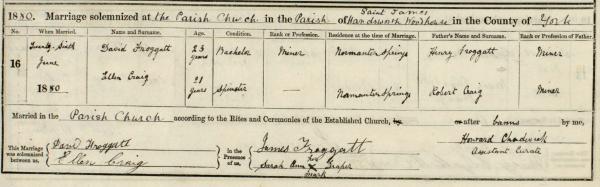 Saint James
1880. Marriage solemnized at the Parish Church in the Parish of Handsworth Woodhouse in the County of York
No. When Married. Name and Surname. Age. Condition. Rank or Profession. Residence at the time of Marriage. Father's Name and Surname. Rank or Profession of Father.
16
Twenty Sixth June 1880
David Froggatt 23 years Bachelor Miner Normanton Springs Henry Froggatt Miner
Ellen Craig 21 years Spinster — Normanton Springs Robert Craig Miner
Married in the Parish Church according to the Rites and Ceremonies of the Established Church, by or after banns by me,
Howard Chadwick
Assistant Curate
This Marriage was solemnized between us,
David Froggatt
Ellen Craig
In the Presence of us,
James Froggatt
Sarah Ann X her mark Draper